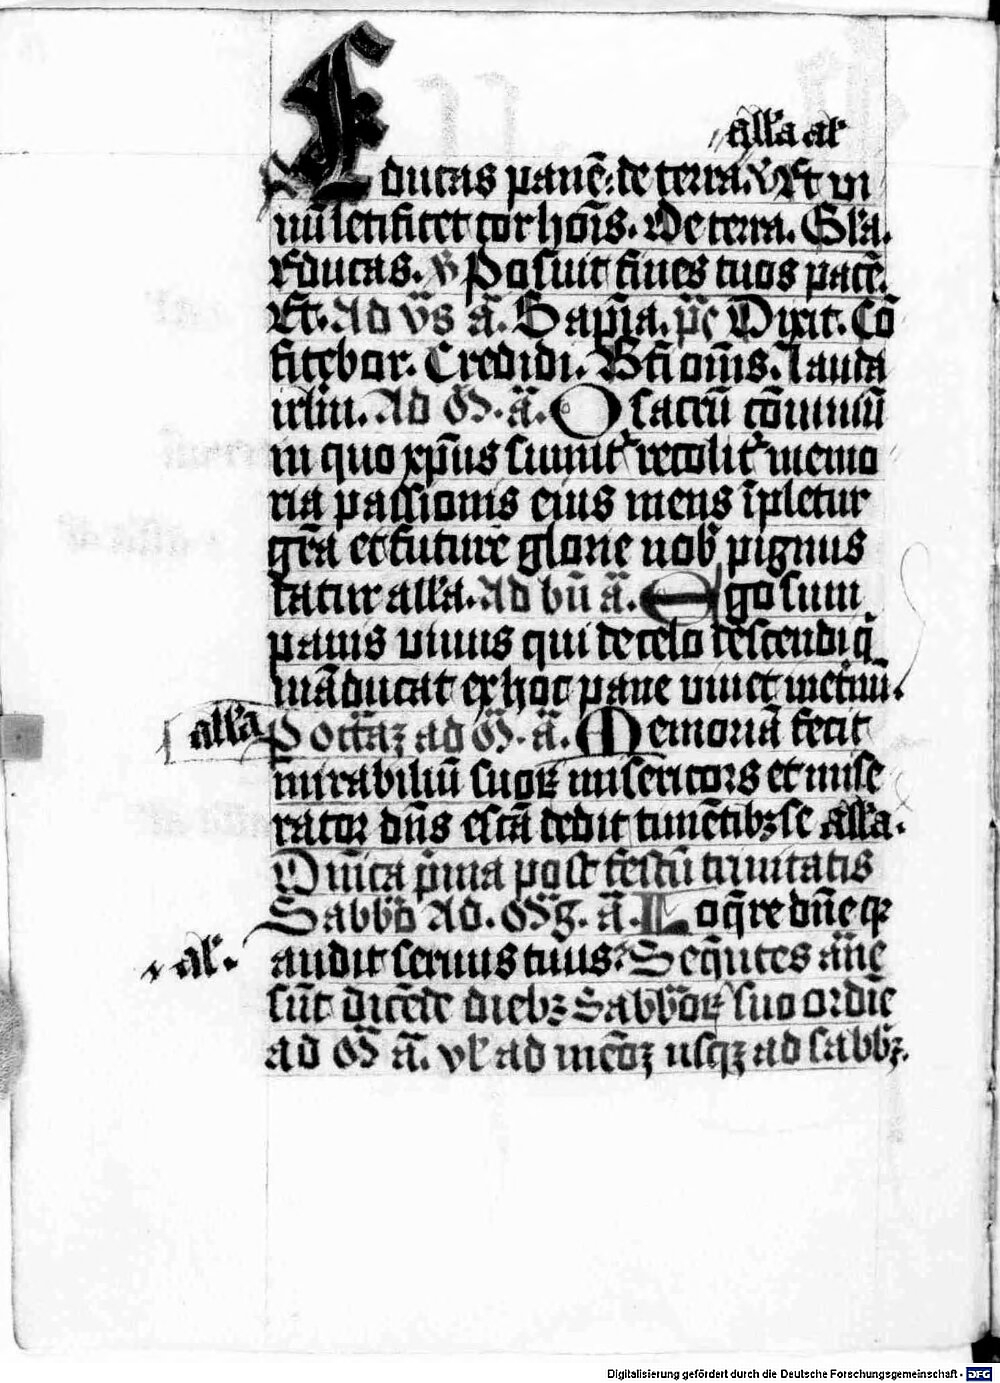 all'a al'
Educas panē: de terra. V̷ Et vi
nū letificet cor hoīs. De terra. Gl'a.
Educas. V̷ Posuit fines tuos pacē.
Et. Ad v̄s ā. Sapīa. p̄s Dixit. Cō
fitebor. Credidi. Bt̄i om̄s. lauda
irlm̄. Ad M̄. ā. O sacrū cōuiuiū
in quo xp̄us sumit᷑ recolit᷑ memo
ria passionis eius mens īpletur
gr̄a et future glorie nob̄ pignus
datur all'a. Ad bn̄ ā. Ego sum
panis uiuus qui de celo descendi q̄
māducat ex hoc pane uiuet inet̄nū.
all'a
Octāꝝ ad M̄. ā. Memoriā fecit
mirabiliū suoꝝ misericors et mise
rator dn̄s escā dedit timētibꝫ se all'a.
Dn̄ica p̄ma post festū trinitatis
Sabb̄o Ad. Mg̅. ā. Loq̄re dn̄e qꝛ
al'.
audit seruus tuus. Seq̄ntes an̄e
sūt dicēde diebꝫ Sabb̄oꝝ suo ordīe
ad M̄ ā. vſ ad mēdꝫ usqꝫ ad sabbꝫ.
Digitalisierung gefördert durch die Deutsche Forschungsgemeinschaft - DFG